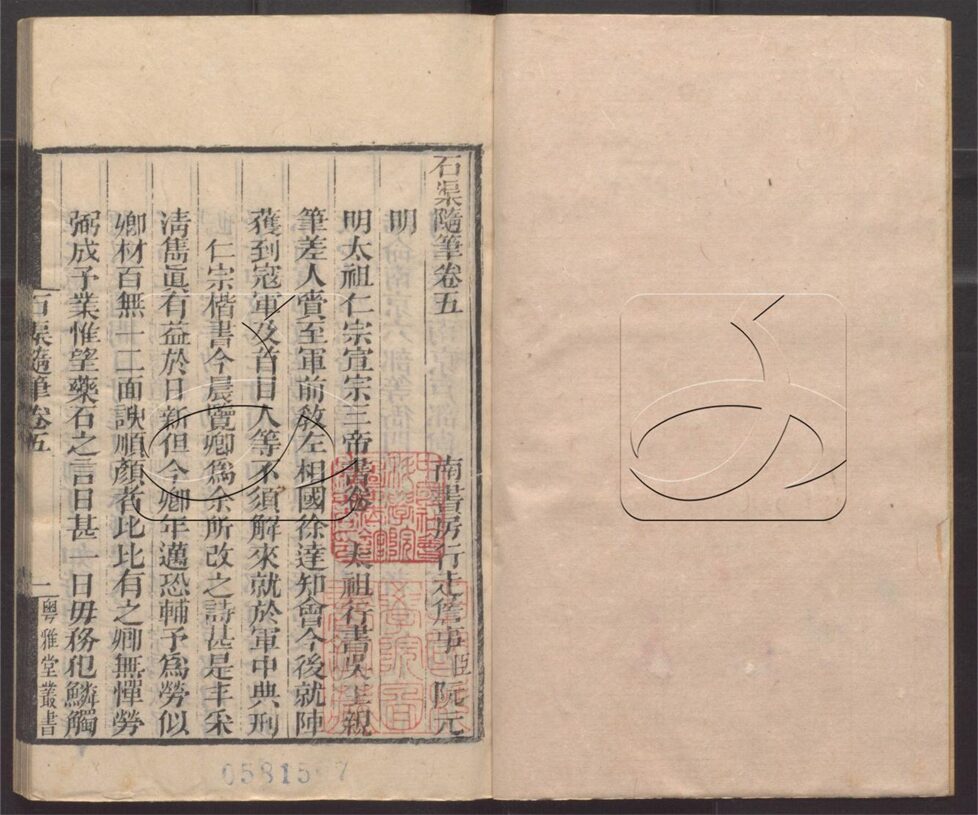 石渠隨筆卷五
南書房行走詹事臣阮元
明
明太祖仁宗宣宗三帝書卷 太祖行書吳王親
筆差人賫至軍前敎左相國徐達知會今後就陣
獲到寇軍及首目人等不須解來就於軍中典刑
仁宗楷書今晨覽卿爲余所改之詩甚是丰采
清雋眞有益於日新但今卿年邁恐輔予爲勞似
卿材百無一二面諛順顏者比比有之卿無憚勞
弼成予業惟望藥石之言日甚一日毋務犯鱗觸
石渠隨筆卷五
一
粵雅堂叢書